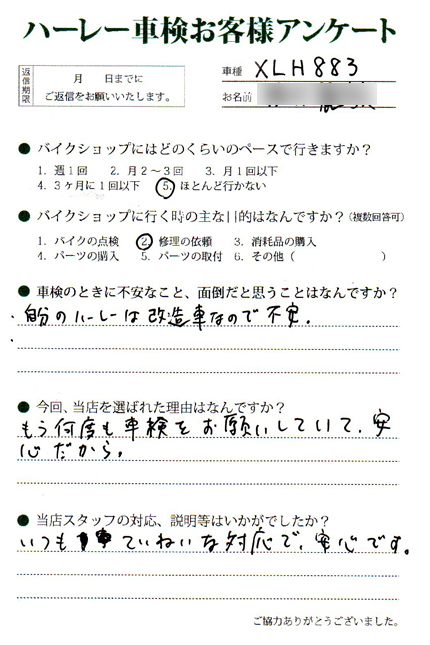 ハーレー車検お客様アンケート
返信期限 月 日までに ご返信をお願いいたします。
車種 XLH883
お名前
● バイクショップにはどのくらいのペースで行きますか？
1. 週1回 2. 月2～3回 3. 月1回以下
4. 3ヶ月に1回以下 5. ほとんど行かない
● バイクショップに行く時の主な目的はなんですか？（複数回答可）
1. バイクの点検 2. 修理の依頼 3. 消耗品の購入
4. パーツの購入 5. パーツの取付 6. その他（ ）
● 車検のときに不安なこと、面倒だと思うことはなんですか？
自分のハーレーは改造車なので不安。
● 今回、当店を選ばれた理由はなんですか？
もう何度も車検をお願いしていて、安
心だから。
● 当店スタッフの対応、説明等はいかがでしたか？
いつもていねいな対応で、安心です。
ご協力ありがとうございました。